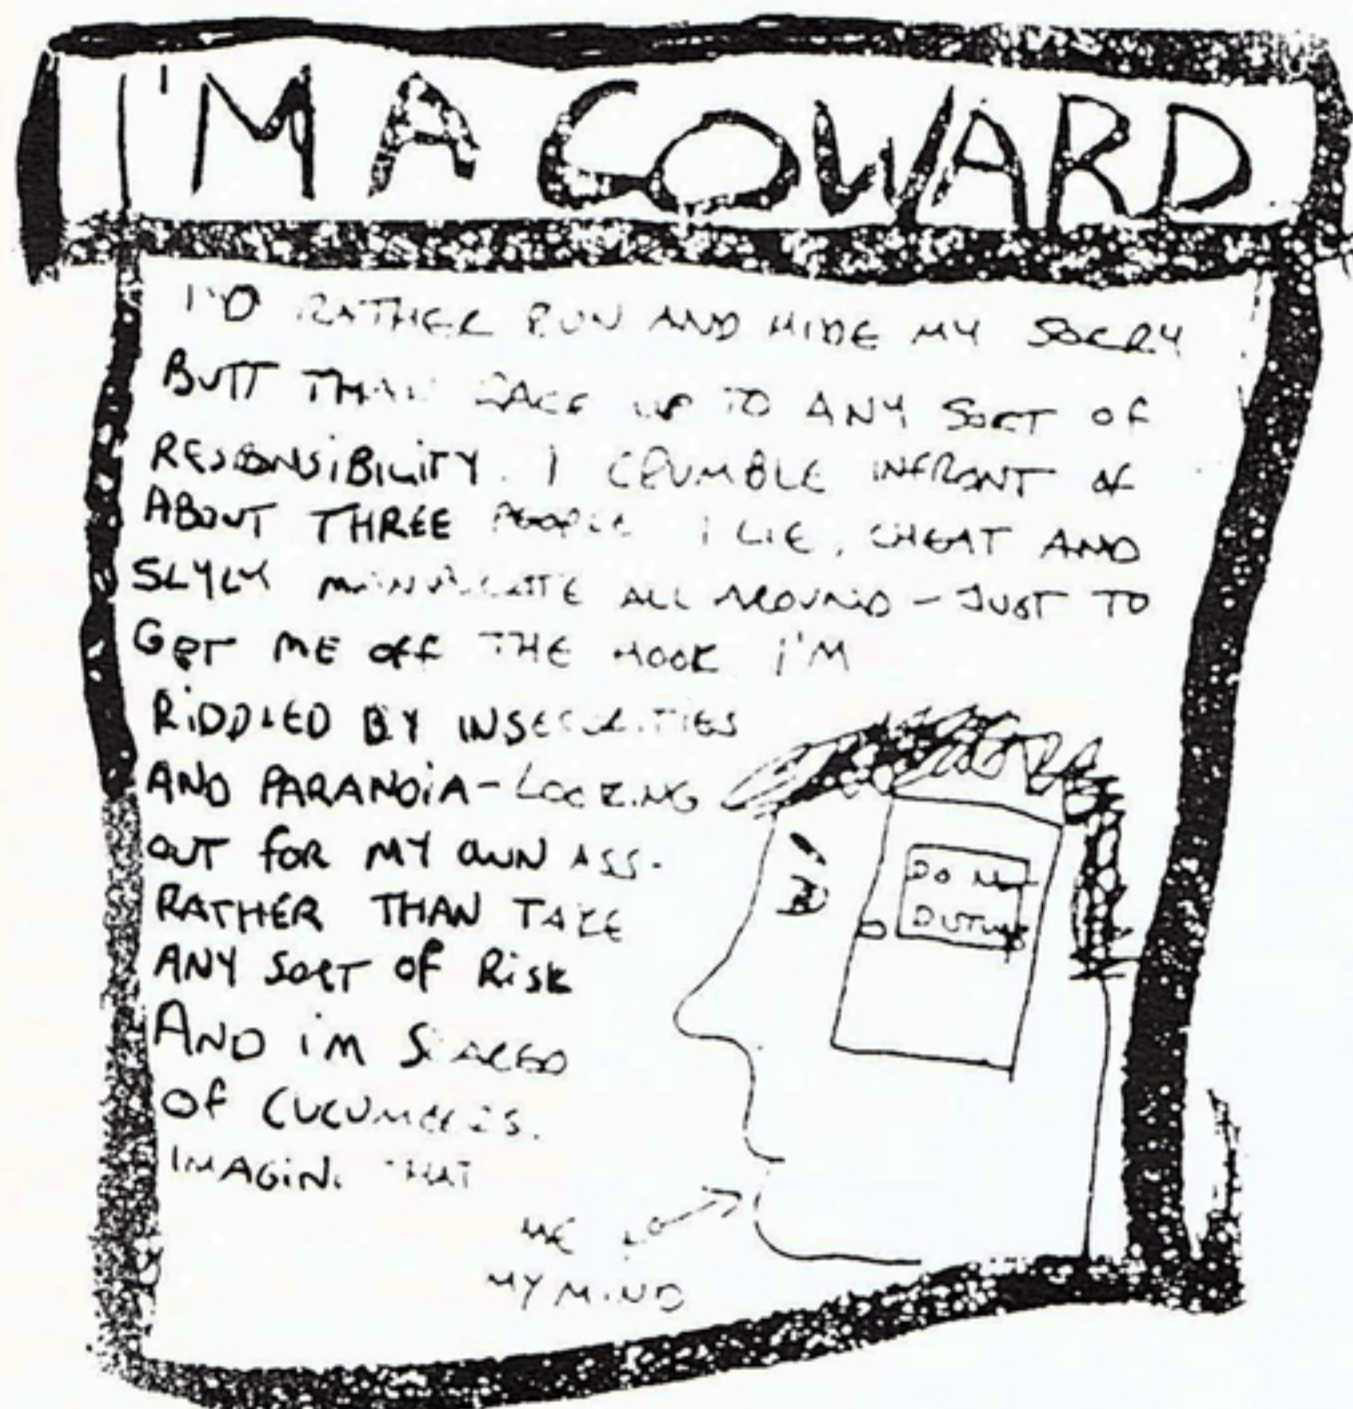 I'M A COWARD
I'D RATHER RUN AND HIDE MY SORRY
BUTT THAN FACE UP TO ANY SORT OF
RESPONSIBILITY. I CRUMBLE INFRONT OF
ABOUT THREE PEOPLE I LIE, CHEAT AND
SLYLY MANIPULATE ALL AROUND - JUST TO
GET ME OFF THE HOOK I'M
RIDDLED BY INSECURITIES
AND PARANOIA - LOOKING
OUT FOR MY OWN ASS.
RATHER THAN TAKE
ANY SORT OF RISK
AND I'M SCARED
OF CUCUMBERS.
IMAGINE THAT
DO NOT
ME
MY MIND